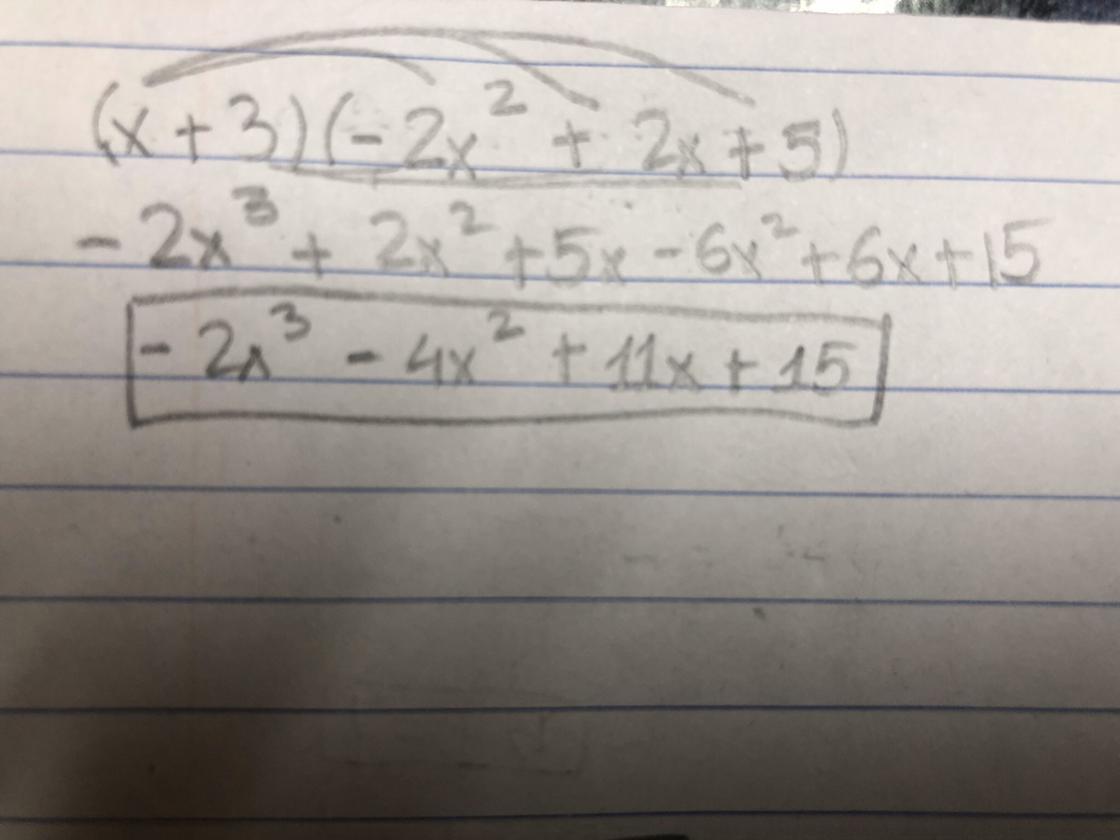 (x + 3)(- 2x² + 2x + 5)
- 2x³ + 2x² + 5x - 6x² + 6x + 15
- 2x³ - 4x² + 11x + 15